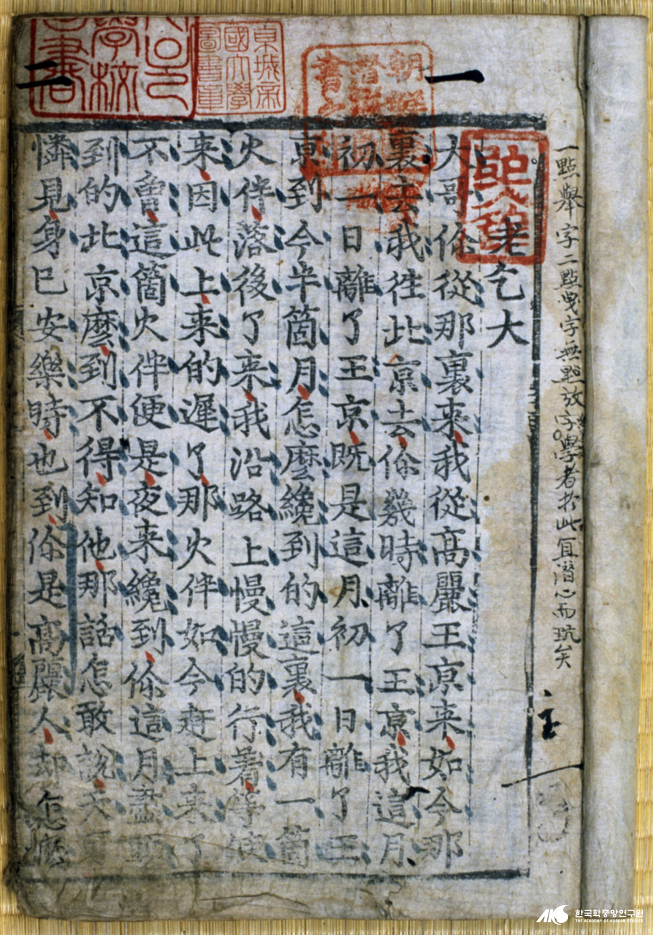 一點舉字二點曳字無點放字學者於此宜潛心而玩矣
老乞大
大哥你從那裏来我從高麗王京来如今那
裏去我徃北京去你幾時離了王京我這月
初一日離了王京既是這月初一日離了王
京到今半箇月怎麽纔到的這裏我有一箇
火伴落後了来我沿路上慢慢的行着等候
来因此上来的遲了那火伴如今赶上来了
不曾這箇火伴便是夜来纔到你這月盡頭
到的北京麽到不得知他那話怎敢說天可
憐見身已安樂時也到你是高麗人却怎麽
一
二
京城帝國大學圖書章
한국학중앙연구원
THE ACADEMY OF KOREAN STUDIES